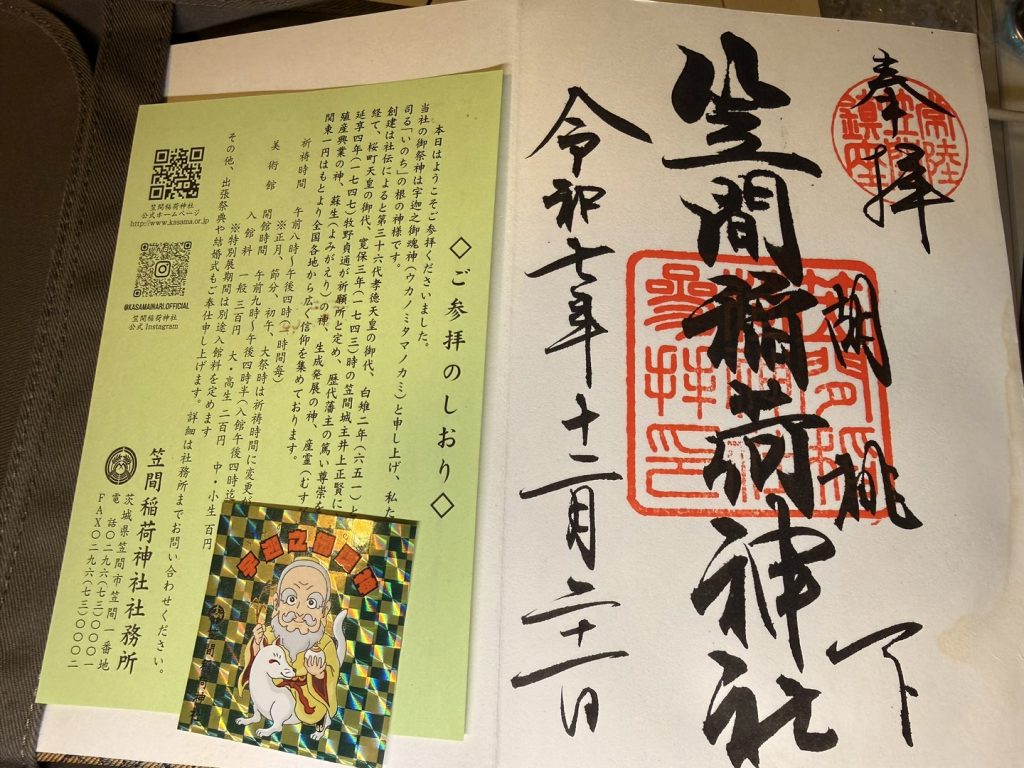 奉拝
常陸
鎮座
胡桃下
笠間稲荷神社
令和七年十二月二十一日
◇ご参拝のしおり◇
本日はようこそご参拝くださいました。
当社の御祭神は宇迦之御魂神(ウカノミタマノカミ)と申し上げ、私た
司る「いのち」の根の神様です。
創建は社伝によると第三十六代孝徳天皇の御代、白雉二年(六五一)と
経て、桜町天皇の御代、寛保三年(一七四三)時の笠間城主井上正賢に
延享四年(一七四七)牧野貞通が祈願所と定め、歴代藩主の篤い尊崇を
殖産興業の神、蘇生(よみがえり)の神、生成発展の神、産霊(むす
関東一円はもとより全国各地から広く信仰を集めております。
祈祷時間 午前八時~午後四時(一時間毎)
※正月、節分、初午、大祭時は祈祷時間に変更が
美術館 開館時間 午前九時~午後四時半(入館午後四時迄
入館料 一般 三百円 大・高生 二百円 中・小生 百円
※特別展期間は別途入館料を定めます
その他、出張祭典や結婚式もご奉仕申し上げます。詳細は社務所までお問い合わせください。
笠間稲荷神社
公式ホームページ
http://www.kasama.or.jp
@KASAMAINARI.OFFICIAL
笠間稲荷神社
公式 Instagram
笠間稲荷神社社務所
茨城県笠間市笠間一番地
電話〇二九六(七三)〇〇〇一
FAX〇二九六(七三)〇〇〇二
宇迦之御魂神
間稲荷神社